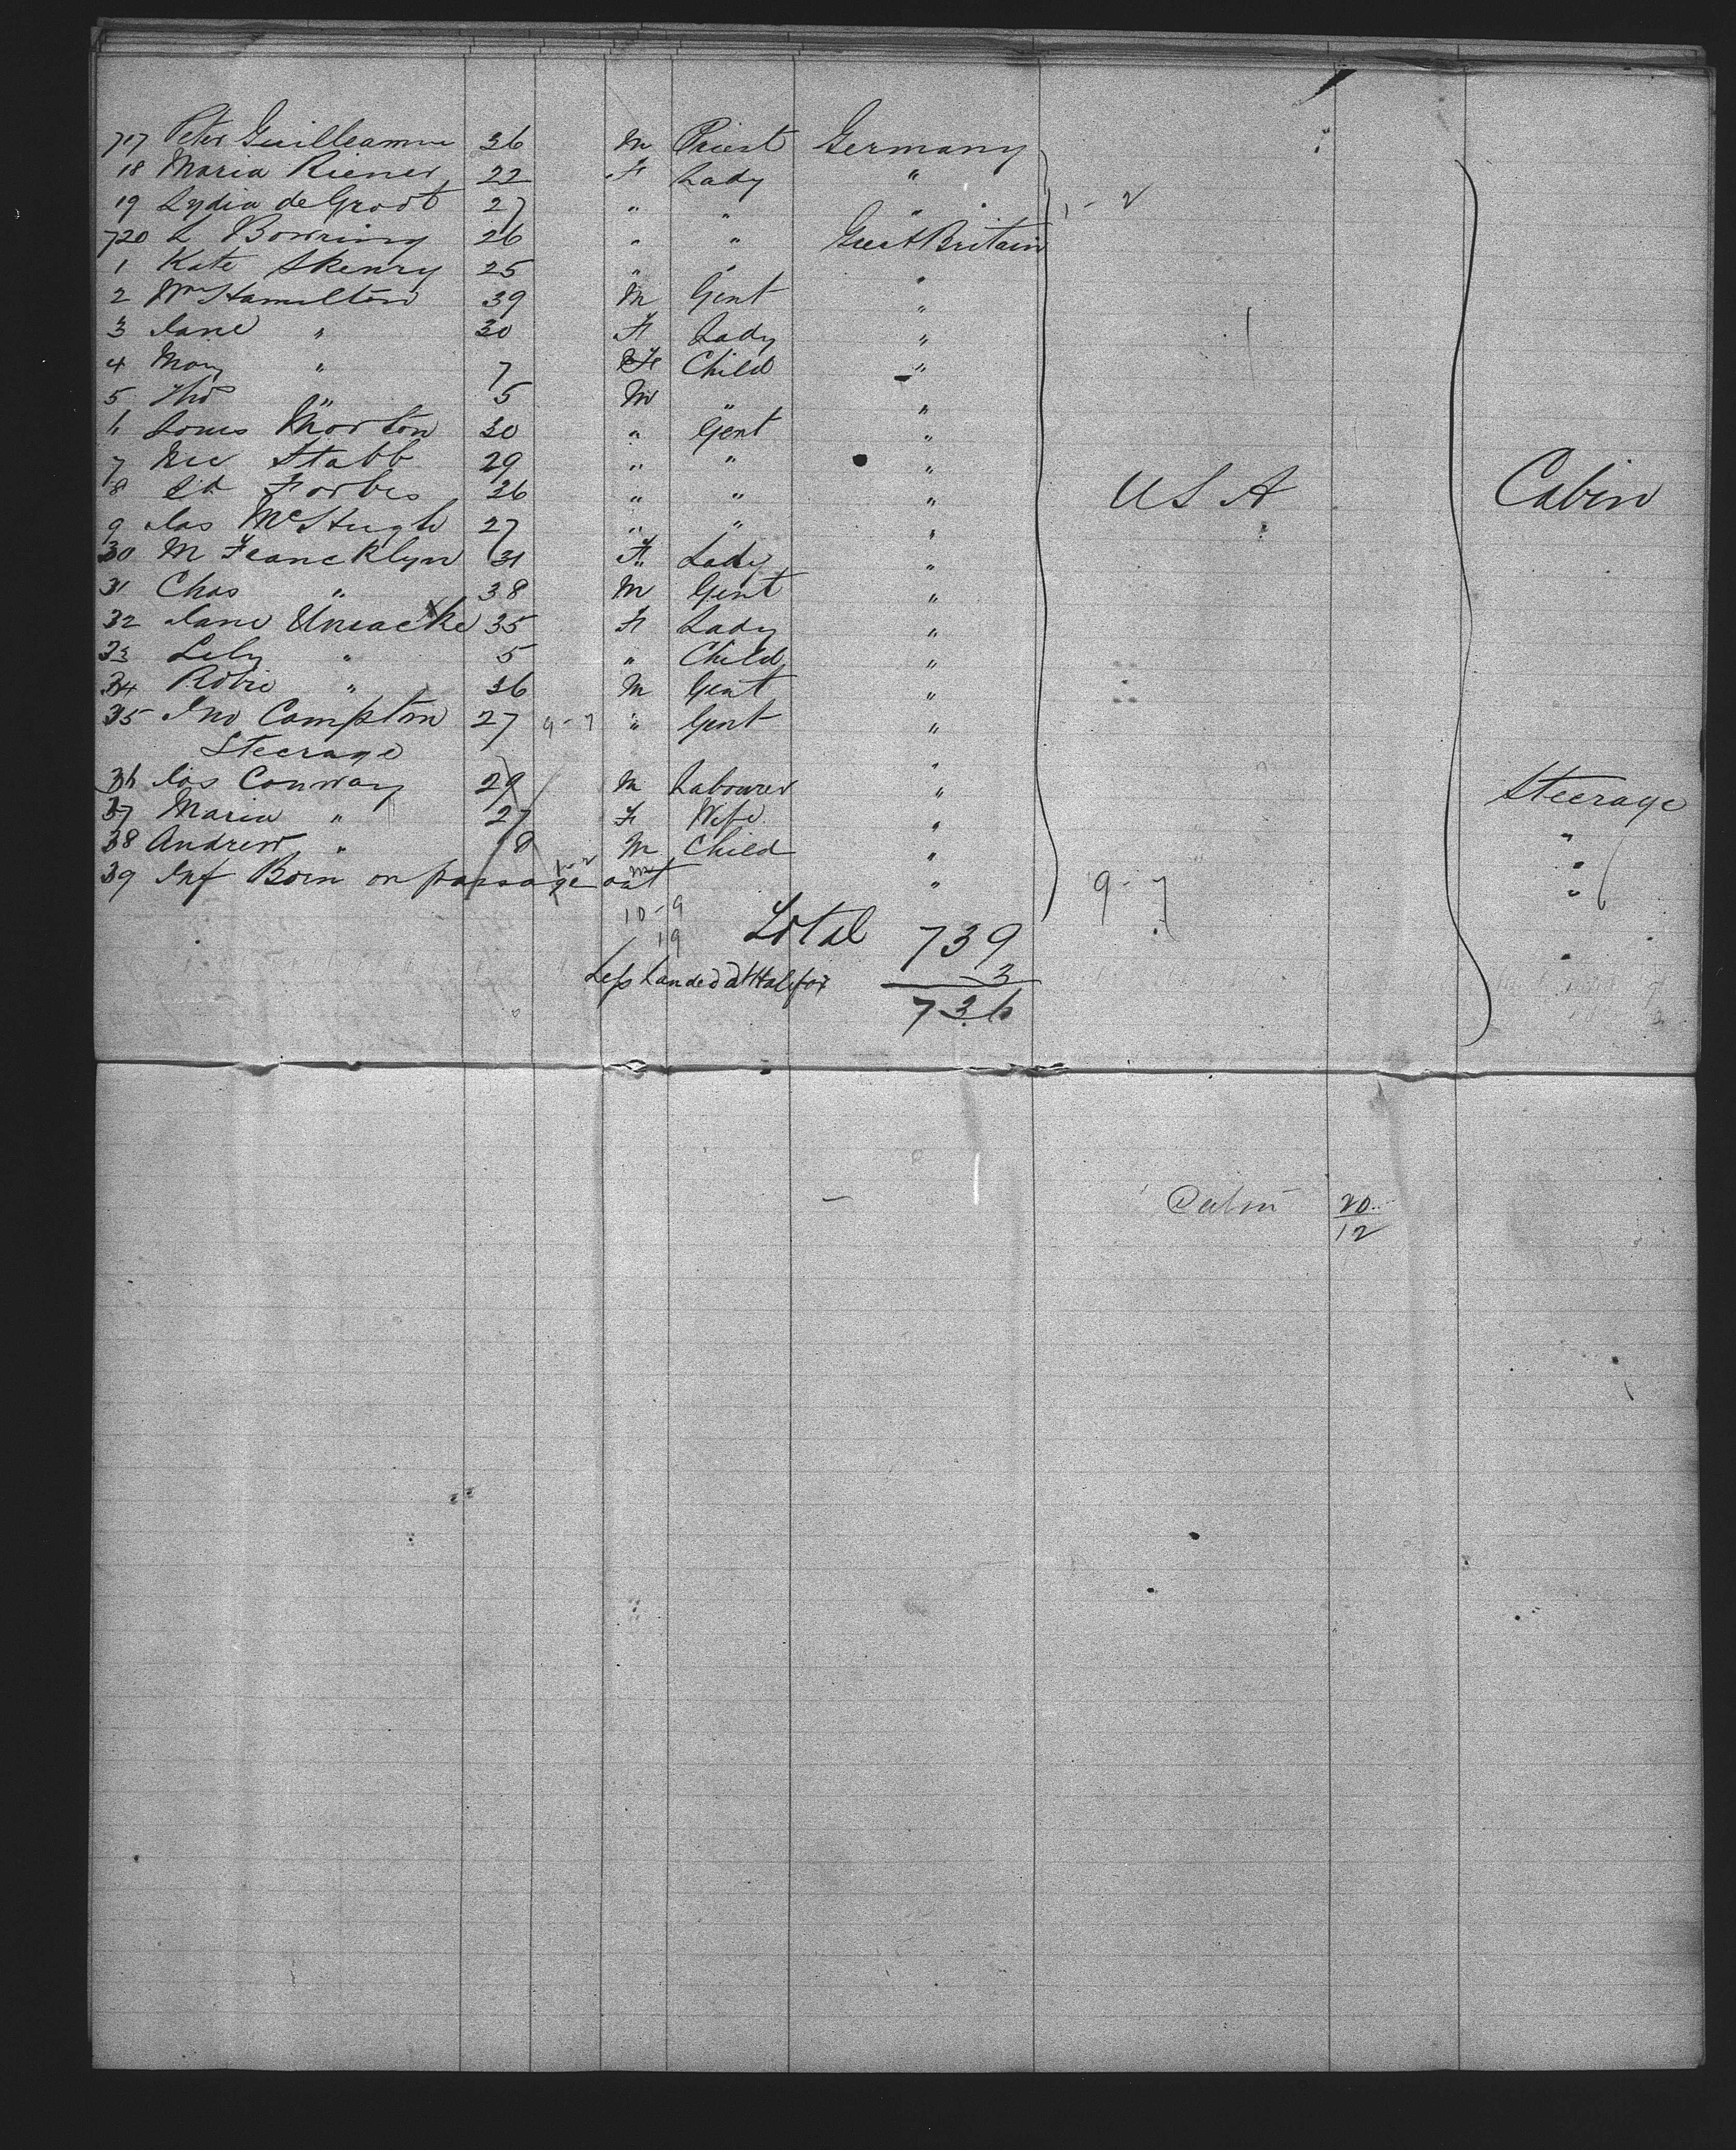 717 Peter Guilleaume 36 M Priest Germany
18 Maria Riener 22 F Lady "
19 Lydia de Groot 27 " " " 1-2
720 L Bowring 26 " " Great Britain
1 Kate Skenry 25 " " "
2 Wm Hamilton 39 M Gent "
3 Jane " 30 F Lady "
4 Mary " 7 F Child "
5 Tho " 5 M " "
6 Louis Morton 30 " Gent "
7 Nic Stabb 29 " " "
8 Ed Forbes 36 " " " USA Cabin
9 Jas McHugh 27 " " "
30 M Francklyn 31 F Lady "
31 Chas " 38 M Gent "
32 Jane Uniacke 35 F Lady "
33 Lily " 5 " Child "
34 Robie " 36 M Gent "
35 Jno Compton 27 9-7 " Gent "
Steerage "
36 Jas Conway 29 M Labourer " Steerage
37 Maria " 27 F Wife " "
38 Andrew " 8 M Child " "
39 Inf Born on passage out 1-2 m " 9-7 "
10-9
19
Total 739
Less Landed at Halifax 3
736
Cabin 20
12